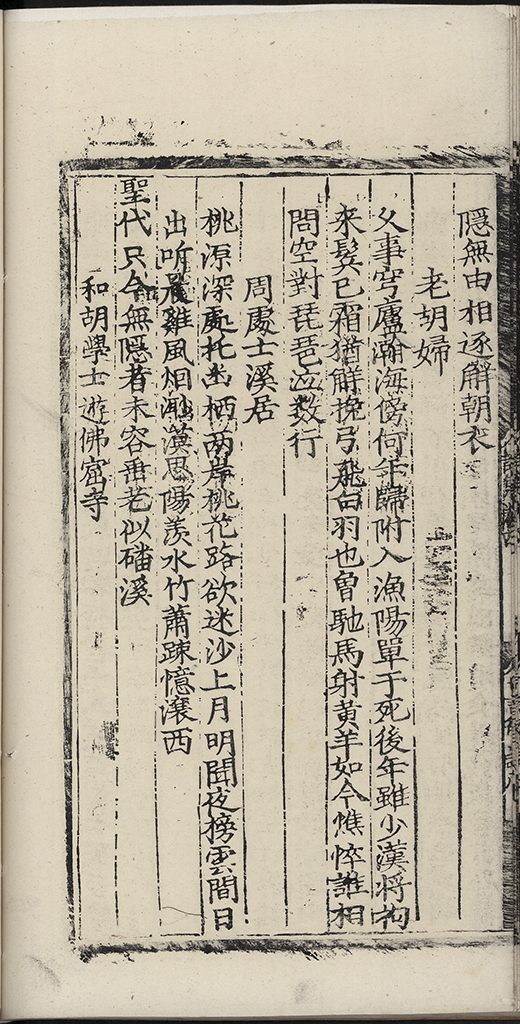 隠無由相逐解朝衣
老胡婦
乆事穹廬瀚海傍何年歸附入漁陽單于死後年雖少漢將拘
来鬂已霜猶觧挽弓飛白羽也曽馳馬射黄羊如今憔悴誰相
問空對琵琶泣数行
周處士溪居
桃源深處托幽栖两岸桃花路欲迷沙上月明聞夜榜雲間日
出听晨雞風烟漠思陽羨水竹蕭踈憶瀼西
聖代只今無隠者未容垂老似磻溪
和胡學士遊佛窟寺